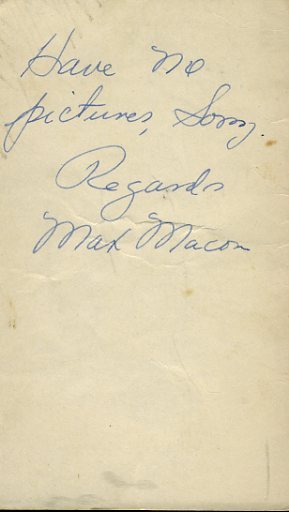 Have no
pictures, Sorry.
Regards
Max Macon